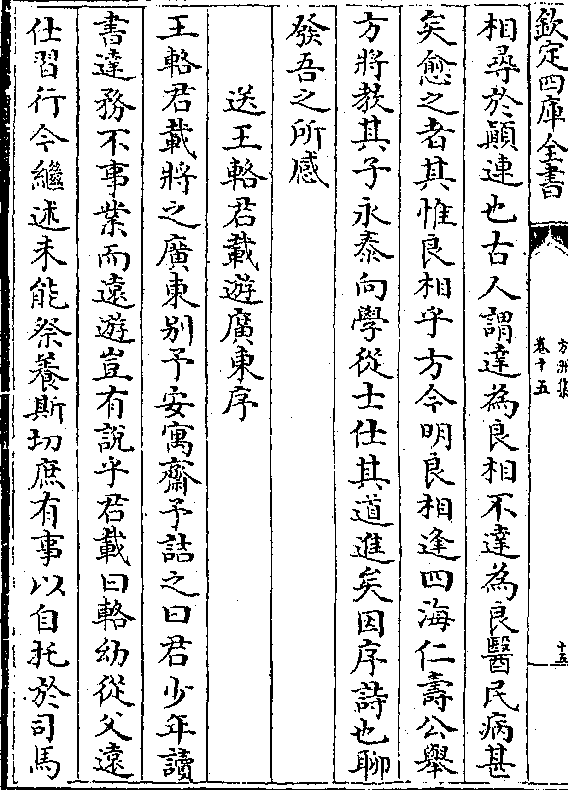 欽定四庫全書
方洲集
卷十五
十五
相尋於顚連也古人謂達為良相不達為良醫民病甚
矣愈之者其惟良相乎方今明良相逢四海仁壽公舉
方將敎其子永泰向學從士仕其道進矣因序詩也聊
發吾之所感
送王輅君載遊廣東序
王輅君載將之廣東别予安寓齋予詰之曰君少年讀
書達務不事業而遠遊豈有說乎君載曰輅幼從父遠
仕習行今繼述未能祭養斯切庶有事以自托於司馬